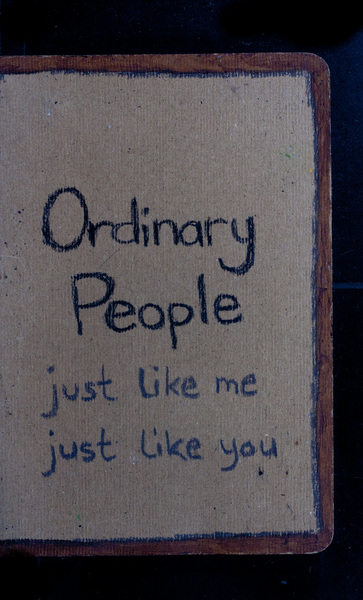 Ordinary
People
just like me
just like you